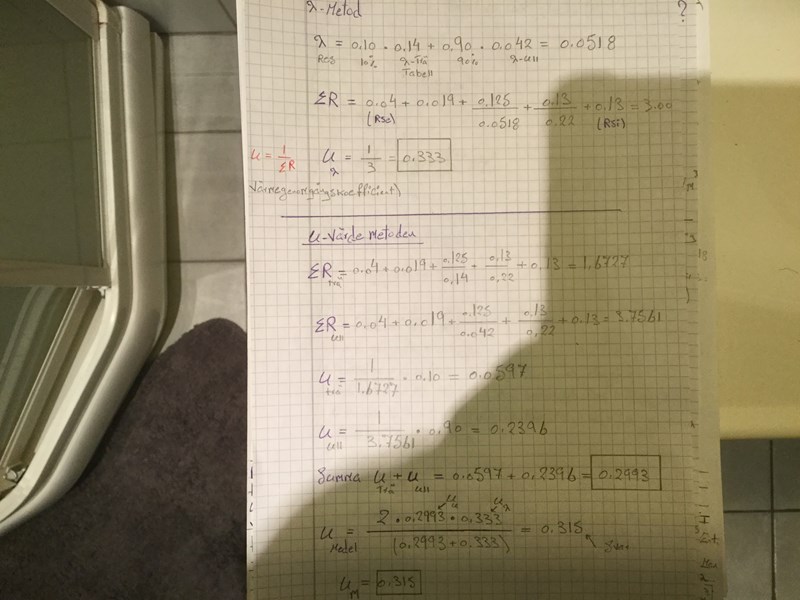 λ-Metod ?
λ = 0.10 · 0.14 + 0.90 · 0.042 = 0.0518
Res 10% λ-Trä 90% λ-ull
Tabell
ΣR = 0.04 + 0.019 + 0.125/0.0518 + 0.13/0.22 + 0.13 = 3.00
(Rse) (Rsi)
u = 1/ΣR U λ = 1/3 = 0.333
U-Värde Metoden
ΣR trä = 0.04 + 0.019 + 0.125/0.14 + 0.13/0.22 + 0.13 = 1.6727
ΣR ull = 0.04 + 0.019 + 0.125/0.042 + 0.13/0.22 + 0.13 = 3.7561
U trä = 1/1.6727 · 0.10 = 0.0597
U ull = 1/3.7561 · 0.90 = 0.2396
Summa U Trä + U ull = 0.0597 + 0.2396 = 0.2993
U Medel = 2 · 0.2993 · 0.333 / (0.2993 + 0.333) = 0.315
U M = 0.315